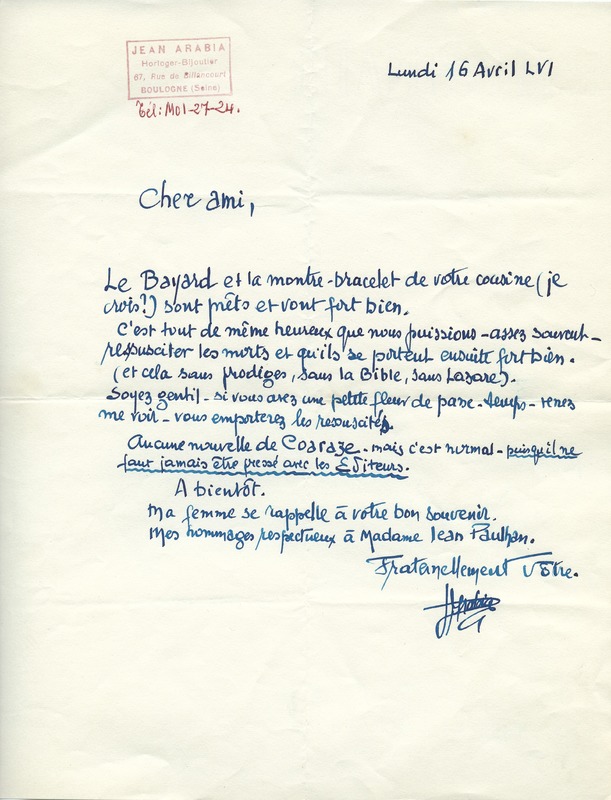 JEAN ARABIA
Horloger-Bijoutier
67, Rue de Billancourt
BOULOGNE (Seine)
Tél: MOL-27-24.
Lundi 16 Avril LVI
Cher ami,
Le Bayard et la montre-bracelet de votre cousine (je
crois?) sont prêts et vont fort bien.
C'est tout de même heureux que nous puissions - assez souvent -
ressusciter les morts et qu'ils se portent ensuite fort bien.
(et cela sans prodiges, sans la Bible, sans Lazare).
Soyez gentil - si vous avez une petite fleur de passe-temps - venez
me voir - vous emporterez les ressuscités.
Aucune nouvelle de Coaraze - mais c'est normal - puisqu'il ne
faut jamais être pressé avec les Editeurs.
A bientôt.
Ma femme se rappelle à votre bon souvenir.
Mes hommages respectueux à Madame Jean Paulhan.
Fraternellement Vôtre.
JArabia